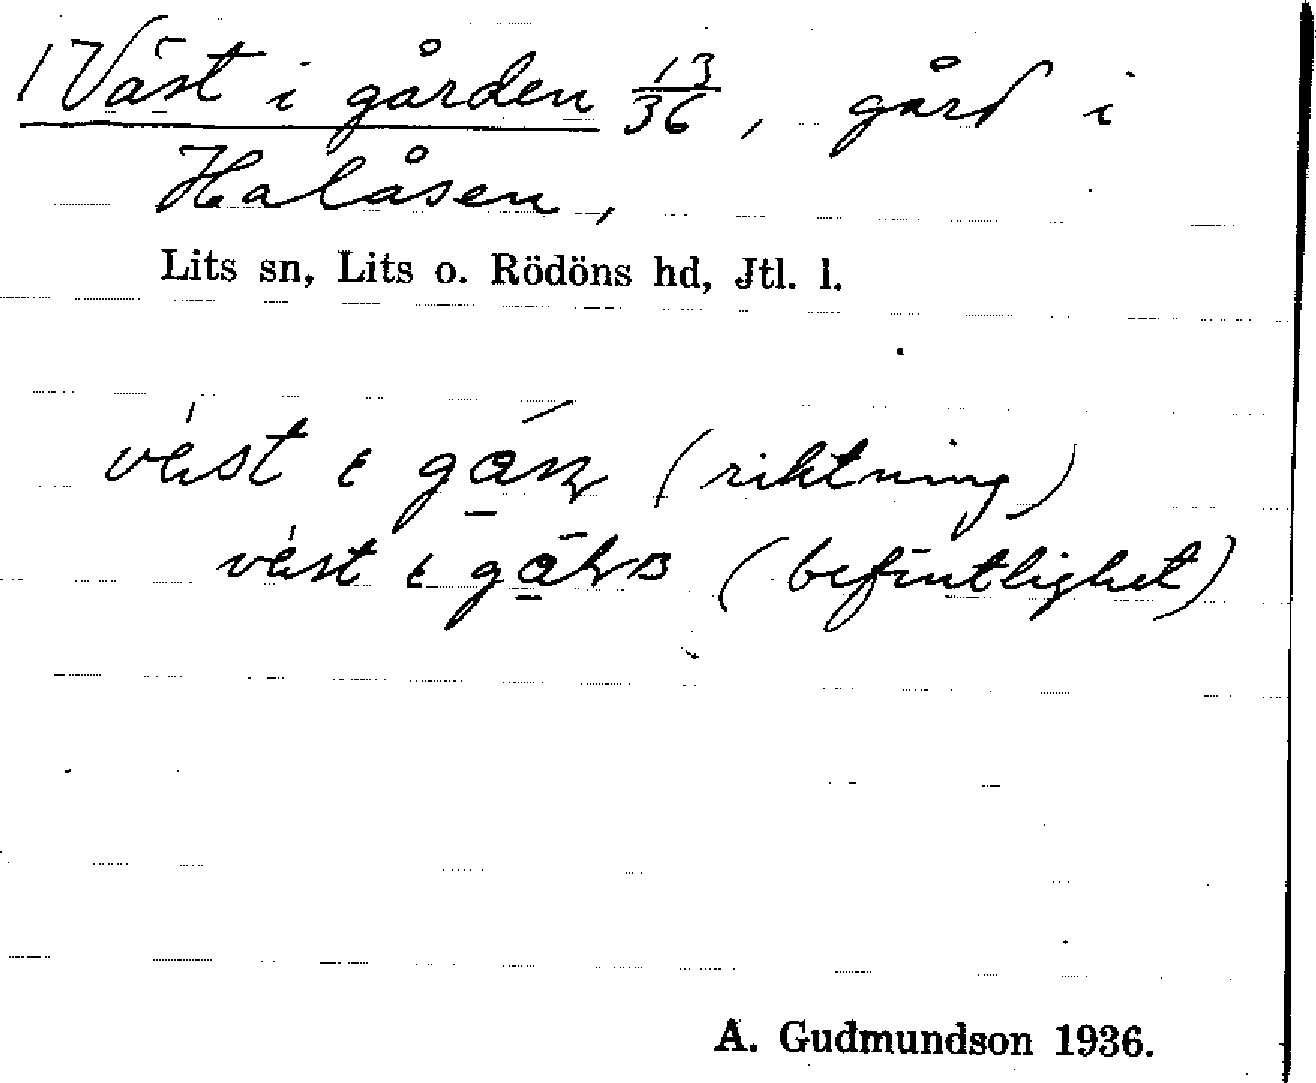 /Väst i gården 13/36, gård i
Halåsen,
Lits sn, Lits o. Rödöns hd, Jtl. l.
(riktning)
(befintlighet)
A. Gudmundson 1936.